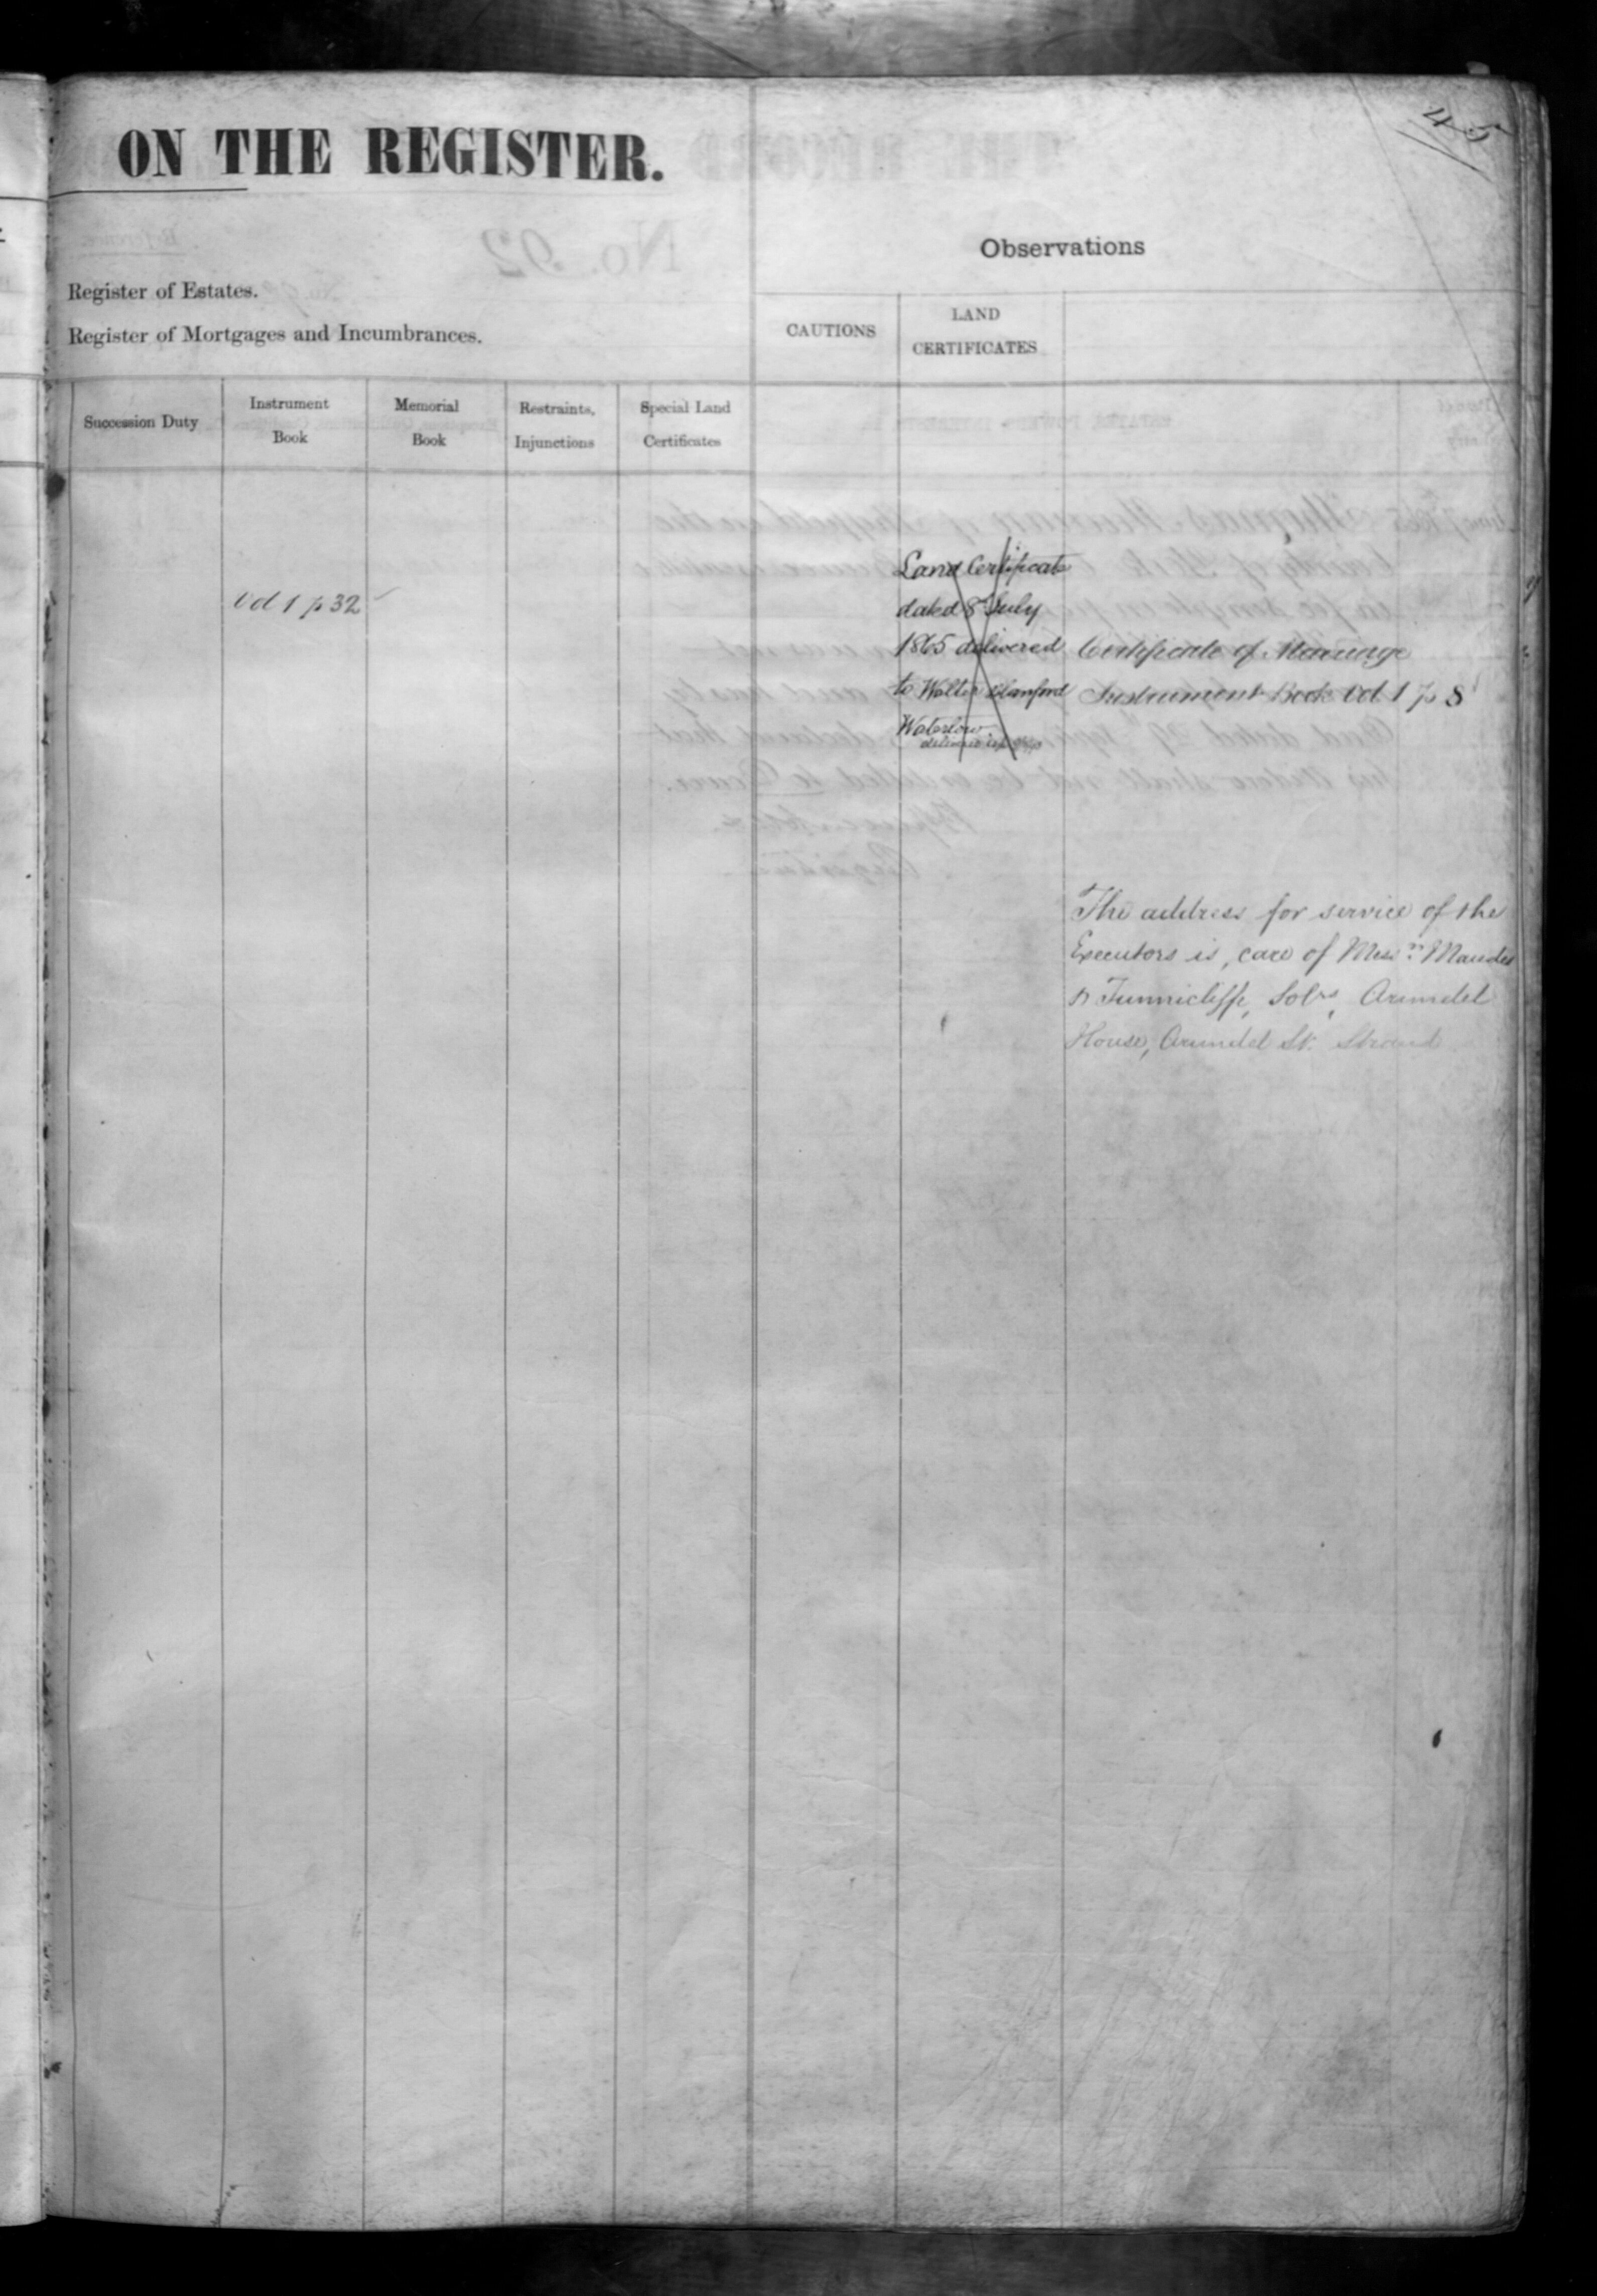 45
ON THE REGISTER.
Observations
Register of Estates.
Register of Mortgages and Incumbrances.
CAUTIONS
LAND
CERTIFICATES
Succession Duty
Instrument
Book
Memorial
Book
Restraints,
Injunctions
Special Land
Certificates
Vol 1 p 32
Land Certificate
dated 8th July
1865 delivered
to Walter Blanford
Waterlow
delivered up
Certificate of Marriage
Instrument Book Vol 1 p 8
The address for service of the
Executors is, care of Messrs: Maudes
& Tunnicliffe, Solrs, Arundel
House, Arundel St. Strand